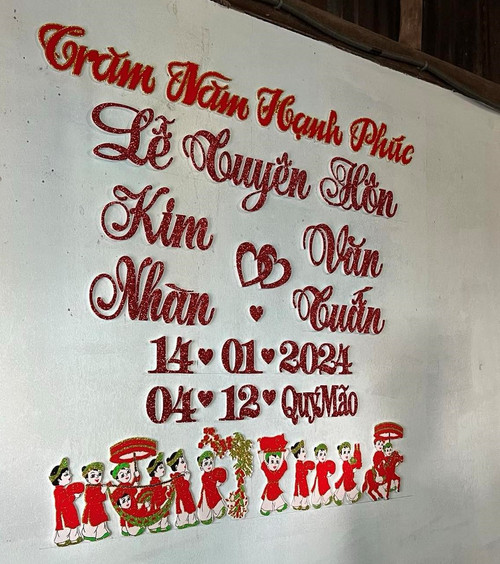 Trăm Năm Hạnh Phúc
Lễ Tuyên Hôn
Kim Văn
Nhàn Tuấn
14 01 2024
04 12 Quý Mão